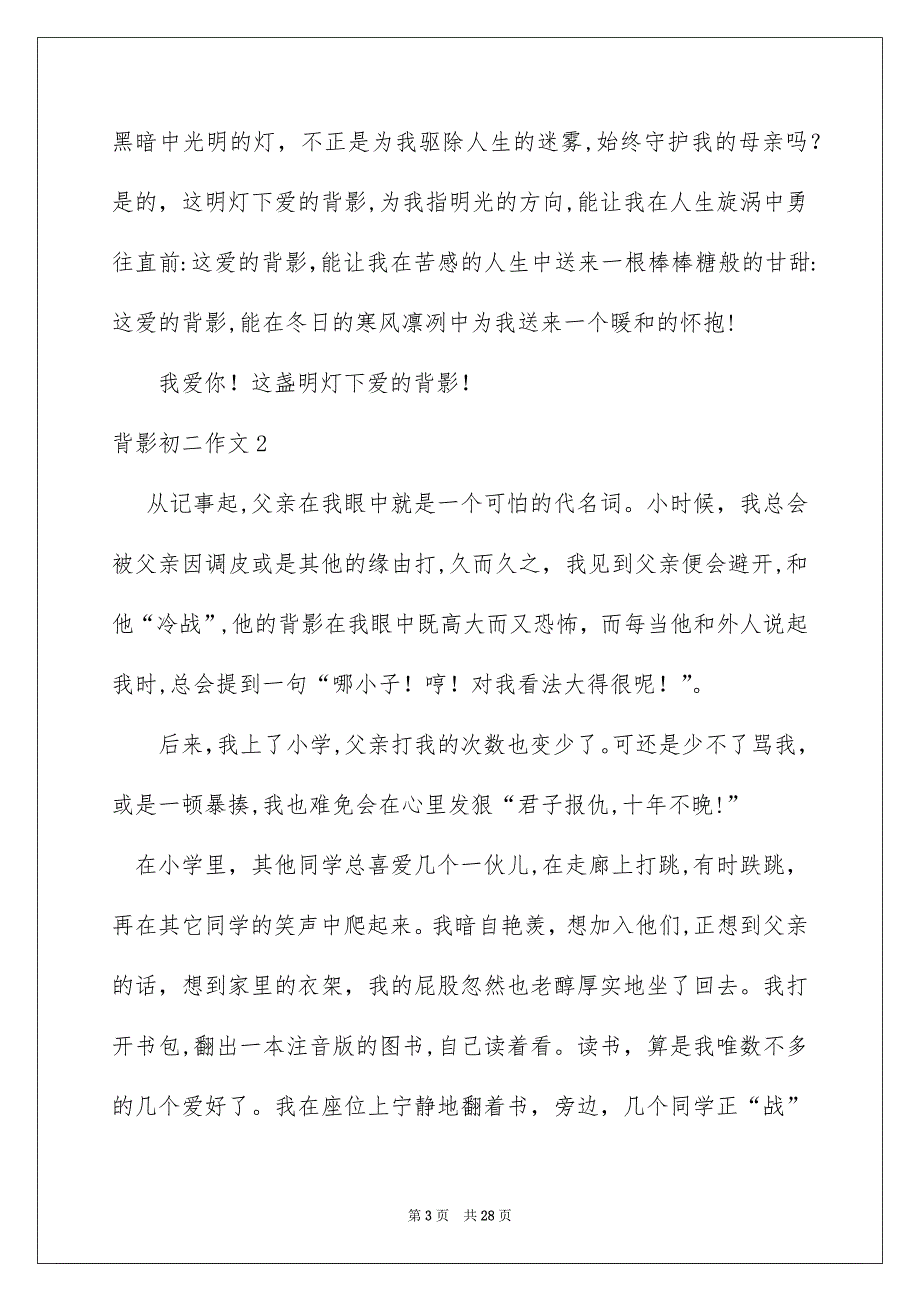 黑暗中光明的灯，不正是为我驱除人生的迷雾,始终守护我的母亲吗？
是的，这明灯下爱的背影,为我指明光的方向,能让我在人生旋涡中勇
往直前:这爱的背影,能让我在苦感的人生中送来一根棒棒糖般的甘甜:
这爱的背影,能在冬日的寒风凛冽中为我送来一个暖和的怀抱!
我爱你！这盏明灯下爱的背影！
背影初二作文2
从记事起,父亲在我眼中就是一个可怕的代名词。小时候，我总会
被父亲因调皮或是其他的缘由打,久而久之，我见到父亲便会避开,和
他“冷战”,他的背影在我眼中既高大而又恐怖，而每当他和外人说起
我时,总会提到一句“哪小子！哼！对我看法大得很呢！”。
后来,我上了小学,父亲打我的次数也变少了。可还是少不了骂我，
或是一顿暴揍,我也难免会在心里发狠“君子报仇,十年不晚!”
在小学里，其他同学总喜爱几个一伙儿,在走廊上打跳,有时跌跳，
再在其它同学的笑声中爬起来。我暗自艳羡，想加入他们,正想到父亲
的话，想到家里的衣架，我的屁股忽然也老醇厚实地坐了回去。我打
开书包,翻出一本注音版的图书,自己读着看。读书，算是我唯数不多
的几个爱好了。我在座位上宁静地翻着书，旁边，几个同学正“战”
第 3 页 共 28 页